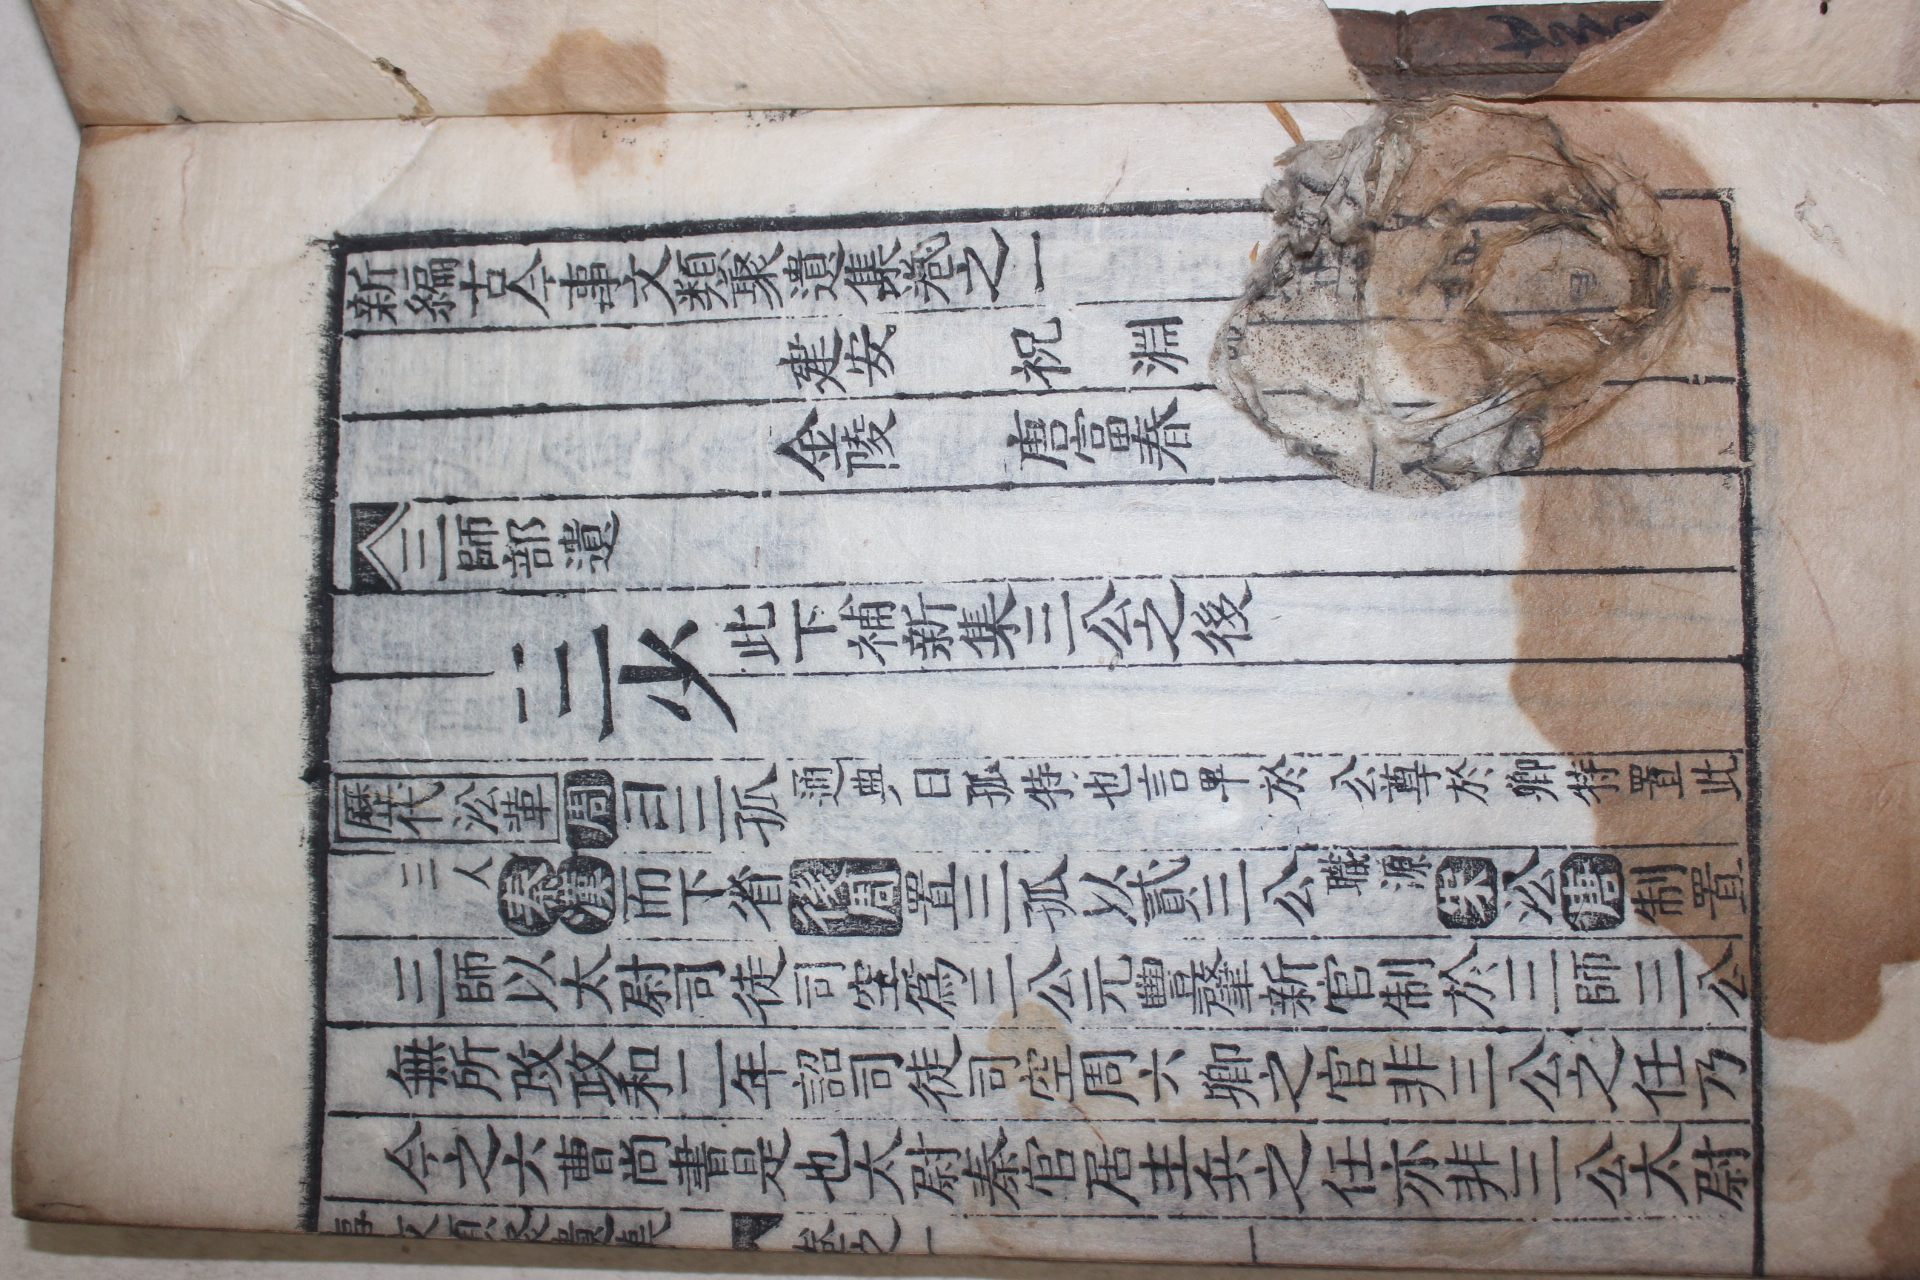 新編古今事文類聚遺集卷之一
建安 祝 淵
金陵 唐富春
三師部遺
三少 此下補新集三公之後
歷代沿革 周曰三孤 通典曰孤特也言卑於公尊於卿特置此
三人 秦漢而下省後周置三孤以貳三公 職源 宋沿唐制置
三師以太尉司徒司空爲三公元豐肇新官制於三師三公
無所改政和二年詔司徒司空周六卿之官非三公之任乃
今之六曹尚書是也太尉秦官居主兵之任亦非三公太尉
事文類聚遺集 卷之一 一